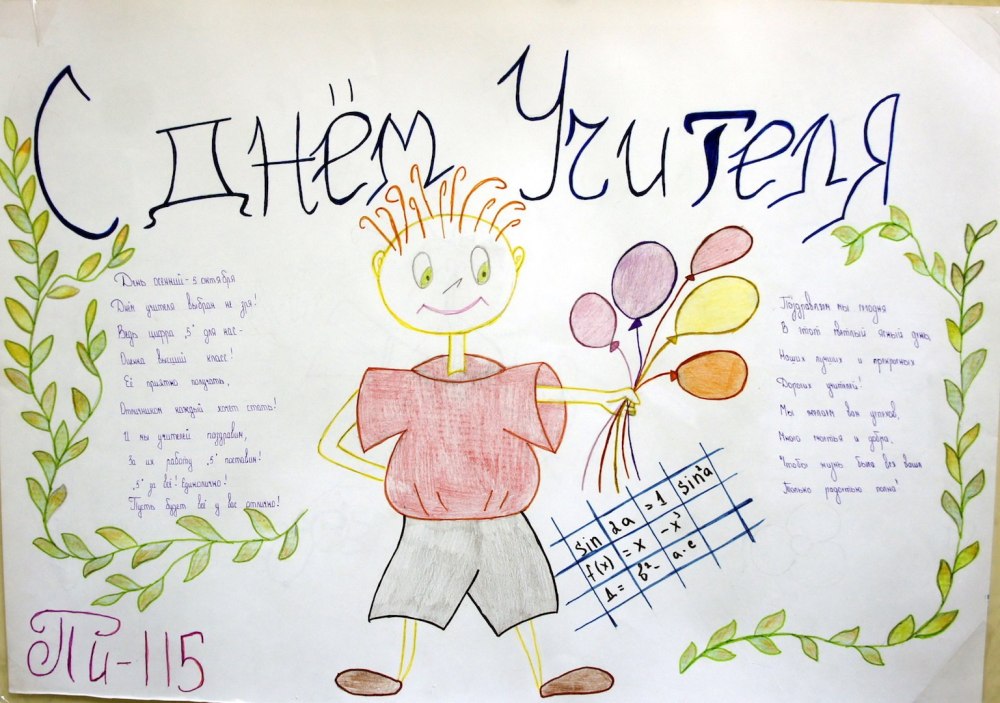 С Днём Учителя
День осенний - 5 октября
Днём учителя выбран не зря!
Ведь цифра „5" для нас -
Оценка высший класс!
Её приятно получать,
Отличником каждый хочет стать!
И мы учителей поздравим,
За их работу „5" поставим!
„5" за всё! Единогласно!
Пусть будет всё у вас отлично!
Поздравляем мы сегодня
В этот светлый ясный день
Наших лучших и прекрасных
Дорогих учителей!
Мы желаем вам успехов,
Много счастья и добра,
Чтобы жизнь была вся ваша
Только радостью полна!
sin 2a = 1 sin²a
f(x) = x - x³
Δ = b²- a·c
Пи-115